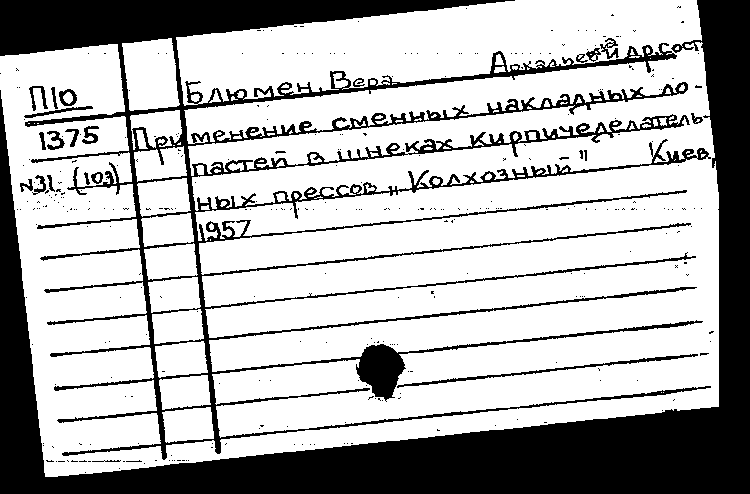 П10
1375
№31 (103)
Блюмен, Вера Аркадьевна и др. сост.
Применение сменных накладных ло-
пастей в шнеках кирпичеделатель-
ных прессов „Колхозный" Киев,
1957